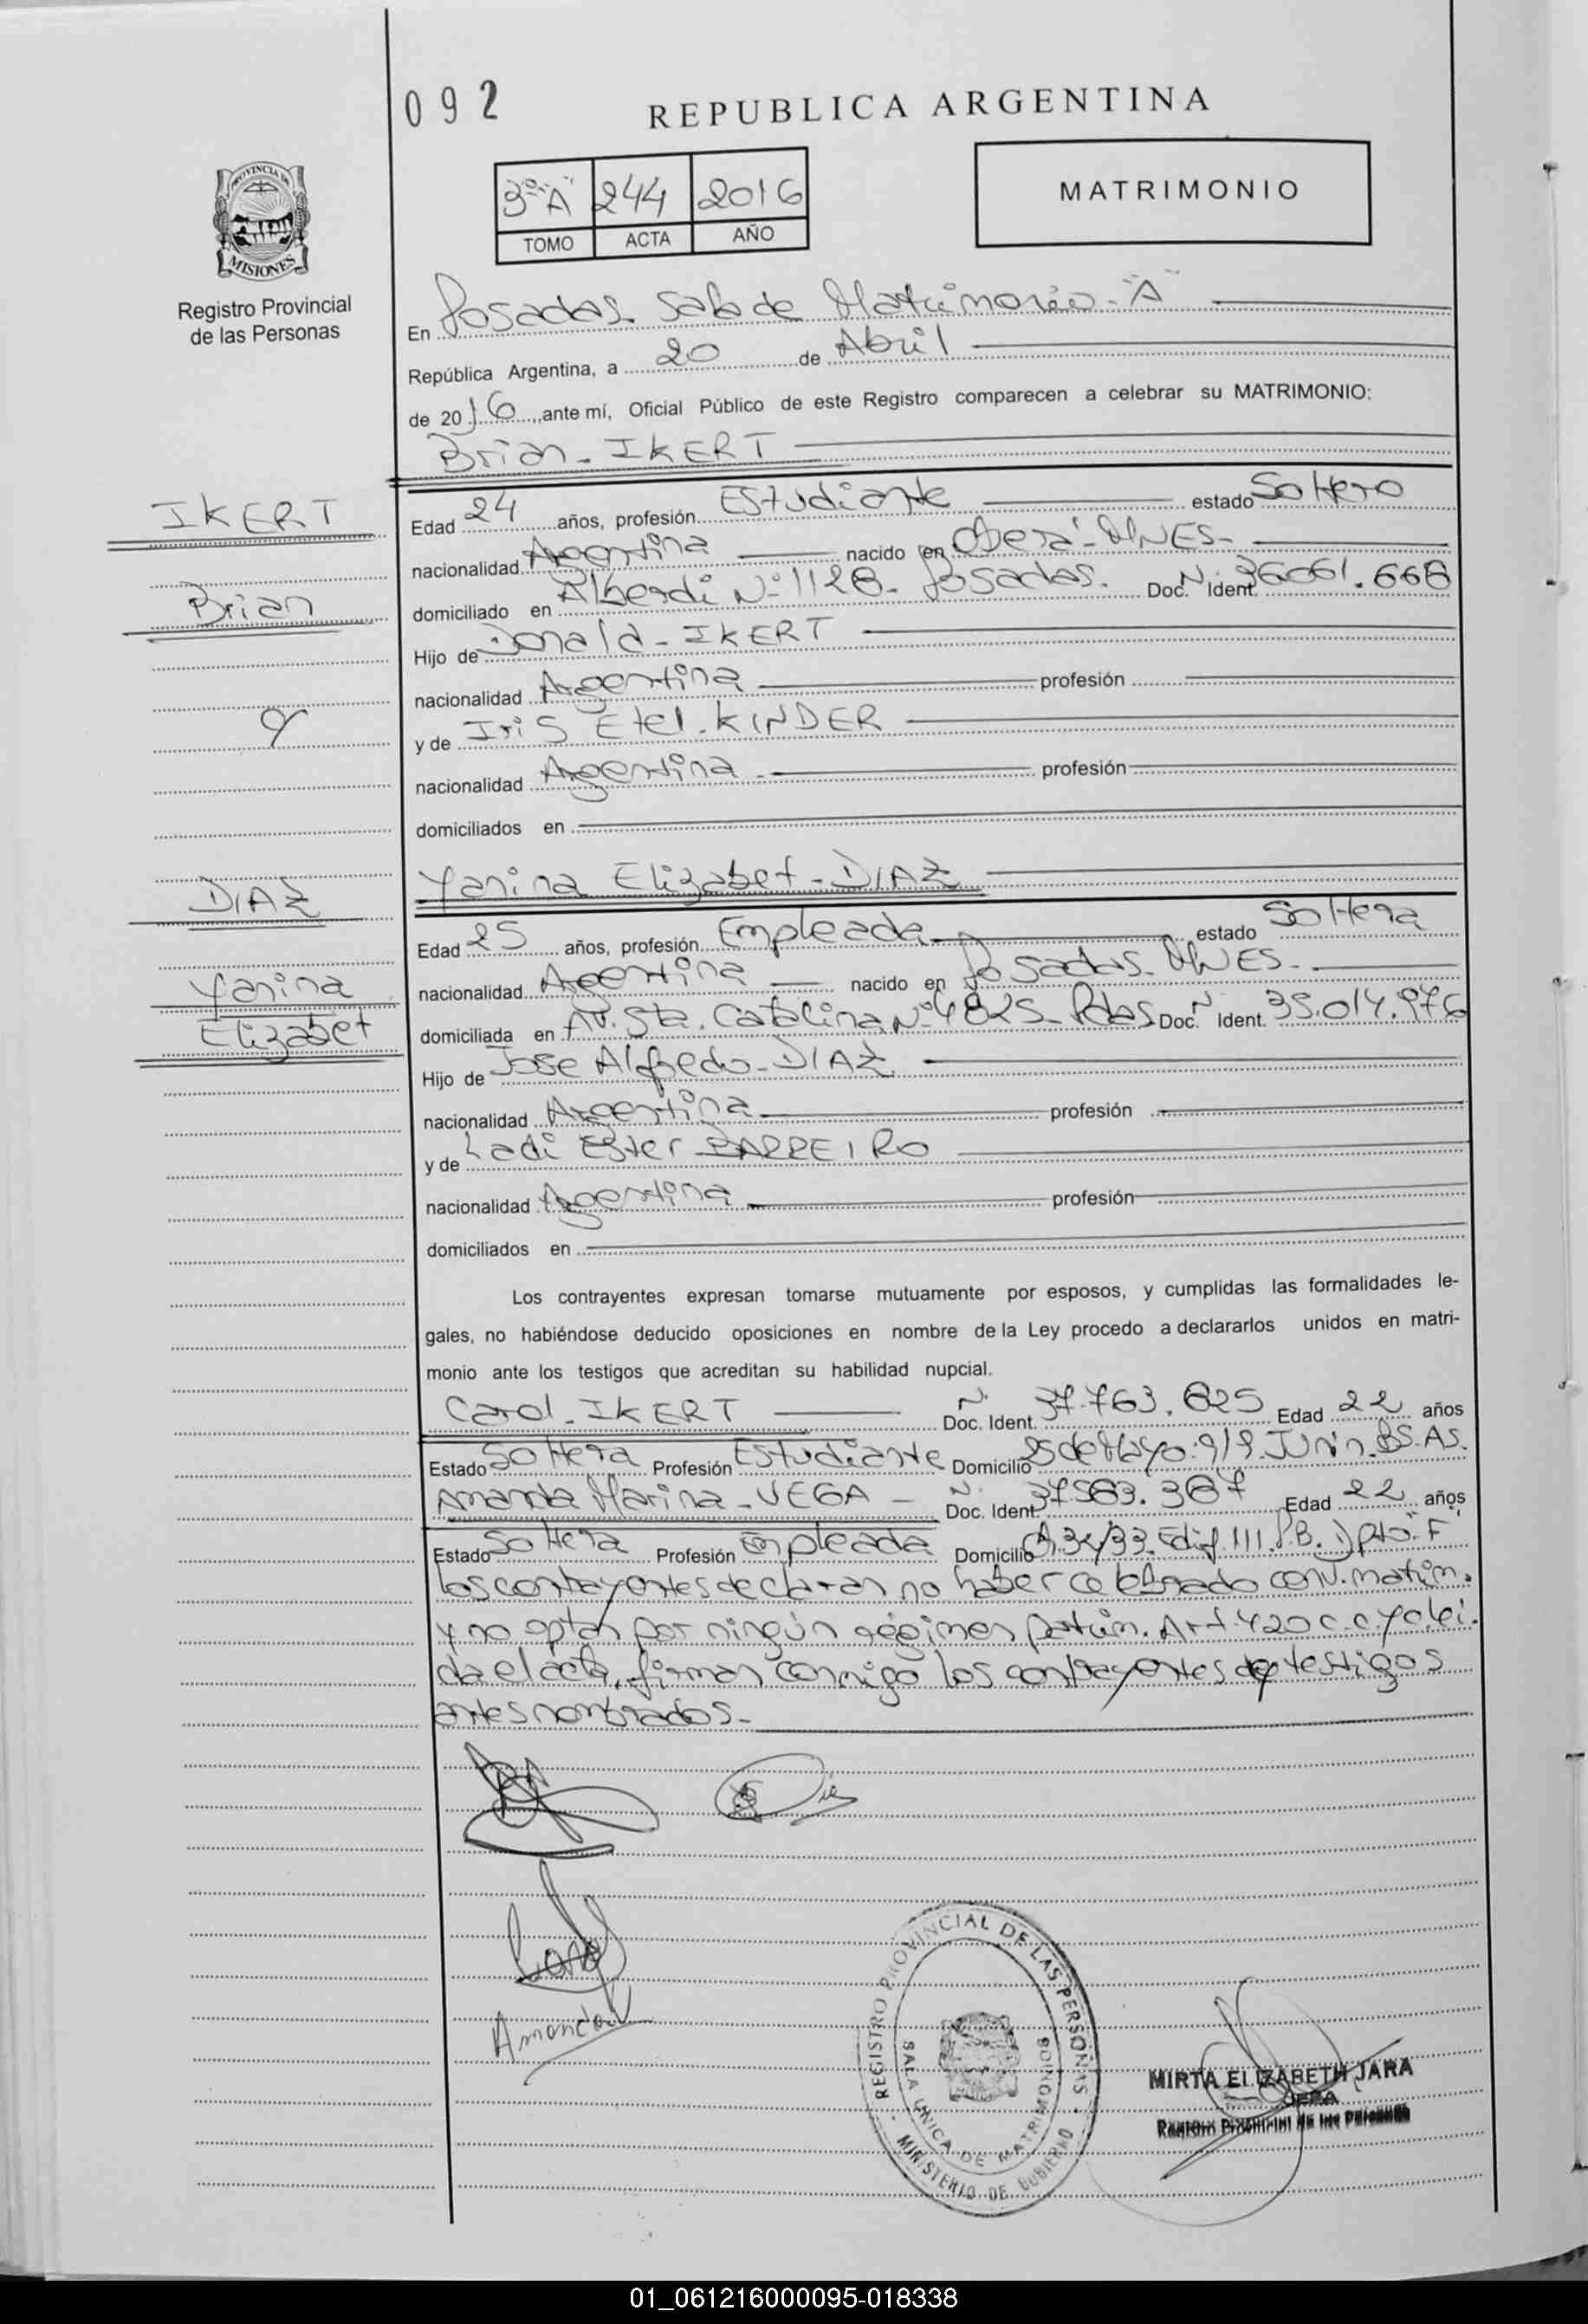 092
REPUBLICA ARGENTINA
3º "A" 244 2016
TOMO ACTA AÑO
MATRIMONIO
PROVINCIA DE
MISIONES
Registro Provincial
de las Personas
En Posadas Sala de Matrimonio - "A"
República Argentina, a 20 de Abril
de 2016, ante mí, Oficial Público de este Registro comparecen a celebrar su MATRIMONIO:
Brian - IKERT
IKERT
Brian
y
DIAZ
Yanina
Elizabet
Edad 24 años, profesión Estudiante estado Soltero
nacionalidad Argentina nacido en Oberá - MNES -
domiciliado en Alberdi Nº 1128 - Posadas. Doc. Nº Ident. 36.061.668
Hijo de Donald - IKERT
nacionalidad Argentina profesión
y de Iris Etel - KINDER
nacionalidad Argentina profesión
domiciliados en
Yanina Elizabet - DIAZ
Edad 25 años, profesión Empleada estado Soltera
nacionalidad Argentina nacido en Posadas - MNES -
domiciliada en Av. Sta. Catalina Nº 4825 - Pdas Doc. Nº Ident. 35.014.976
Hijo de Jose Alfredo - DIAZ
nacionalidad Argentina profesión
y de Ladi Ester BARREIRO
nacionalidad Argentina profesión
domiciliados en
Los contrayentes expresan tomarse mutuamente por esposos, y cumplidas las formalidades le-
gales, no habiéndose deducido oposiciones en nombre de la Ley procedo a declararlos unidos en matri-
monio ante los testigos que acreditan su habilidad nupcial.
Carol - IKERT Doc. Nº Ident. 37.763.825 Edad 22 años
Estado Soltera Profesión Estudiante Domicilio 25 de Mayo 919 Junin - BS. AS.
Amanda Marina - VEGA - Doc. Nº Ident. 37583.387 Edad 22 años
Estado Soltera Profesión Empleada Domicilio 32/33 Edif. III P.B. Dpto "F"
los contrayentes declaran no haber celebrado conv. matrim.
y no optan por ningún régimen patrim. Art. 420 C.C. y C. lei-
da el acta, firman conmigo los contrayentes y testigos
antes nombrados -
Carol
Amanda
REGISTRO PROVINCIAL DE LAS PERSONAS
SALA UNICA DE MATRIMONIOS
MINISTERIO DE GOBIERNO
MIRTA ELIZABETH JARA
JEFA
Registro Provincial de las Personas
01_061216000095-018338